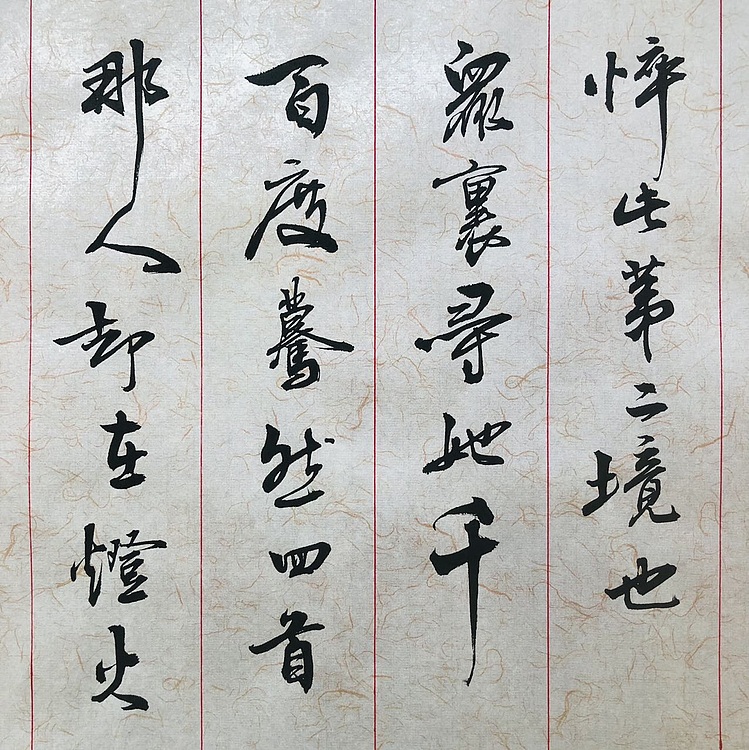 悴此第二境也
衆裏尋她千
百度驀然回首
那人却在燈火